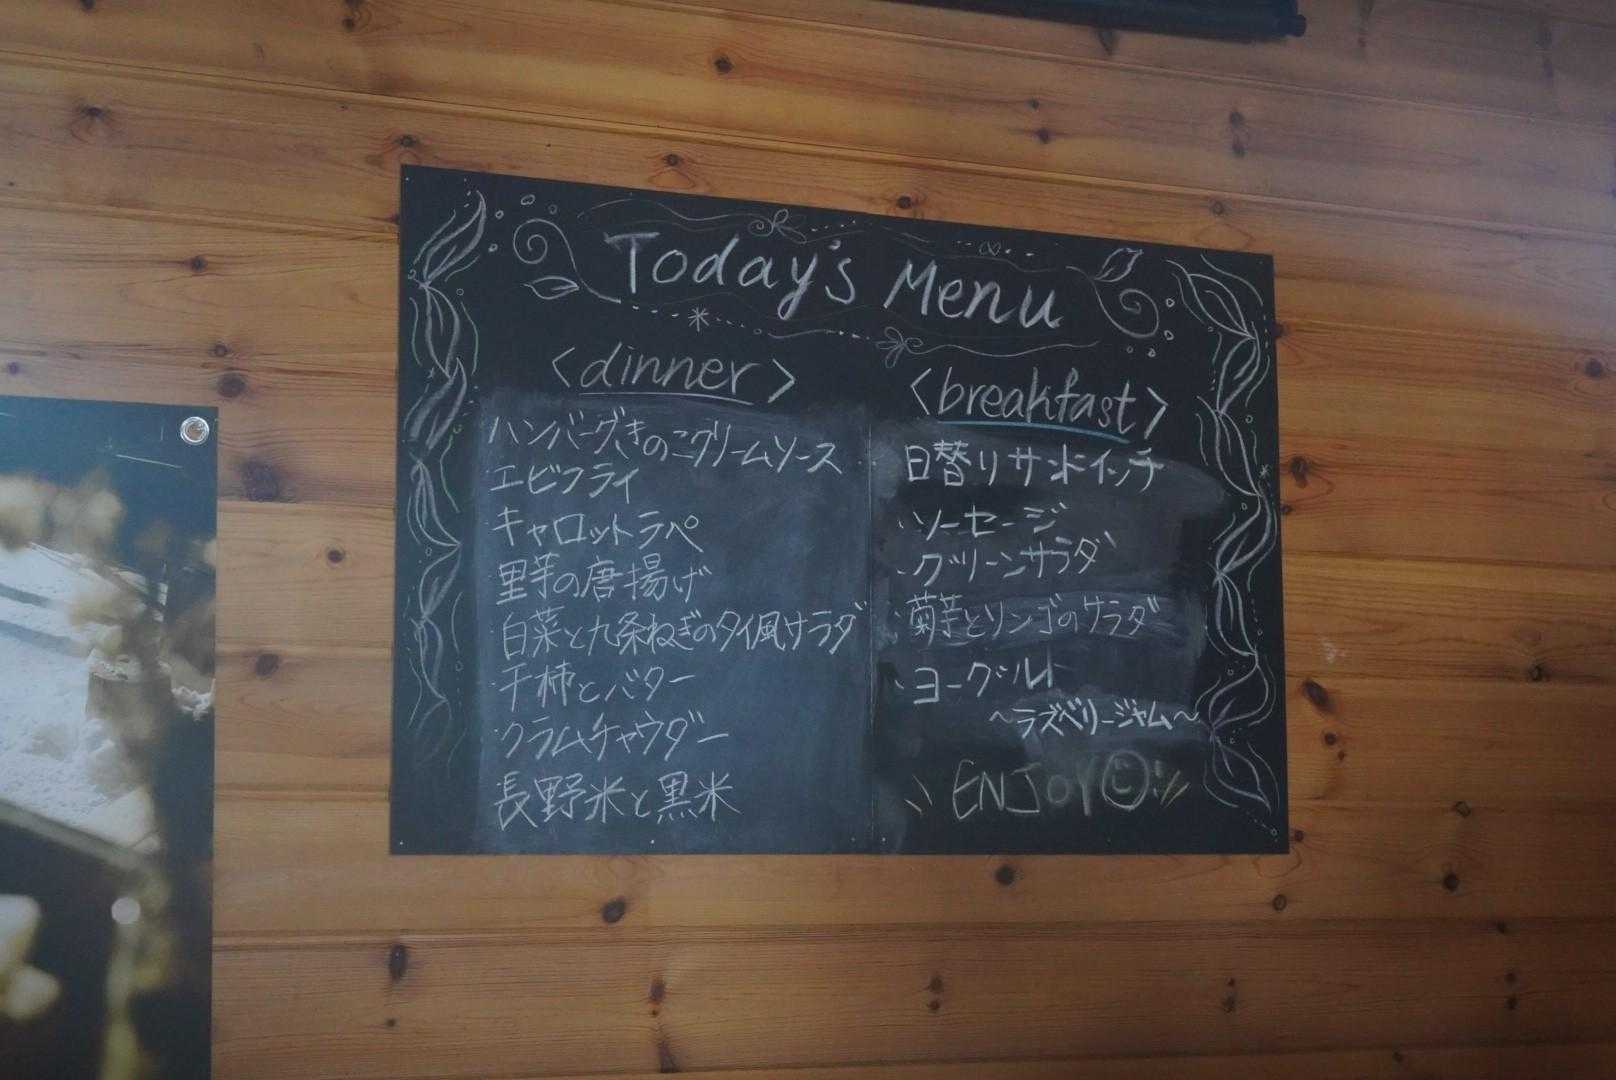 Today's Menu
<dinner>
ハンバーグきのこクリームソース
エビフライ
キャロットラペ
里芋の唐揚げ
白菜と九条ねぎのタイ風サラダ
干柿とバター
クラムチャウダー
長野米と黒米
<breakfast>
日替りサンドインチ
・ソーセージ
・グリーンサラダ
・菊芋とリンゴのサラダ
・ヨーグルト
～ラズベリージャム～
ENJOY